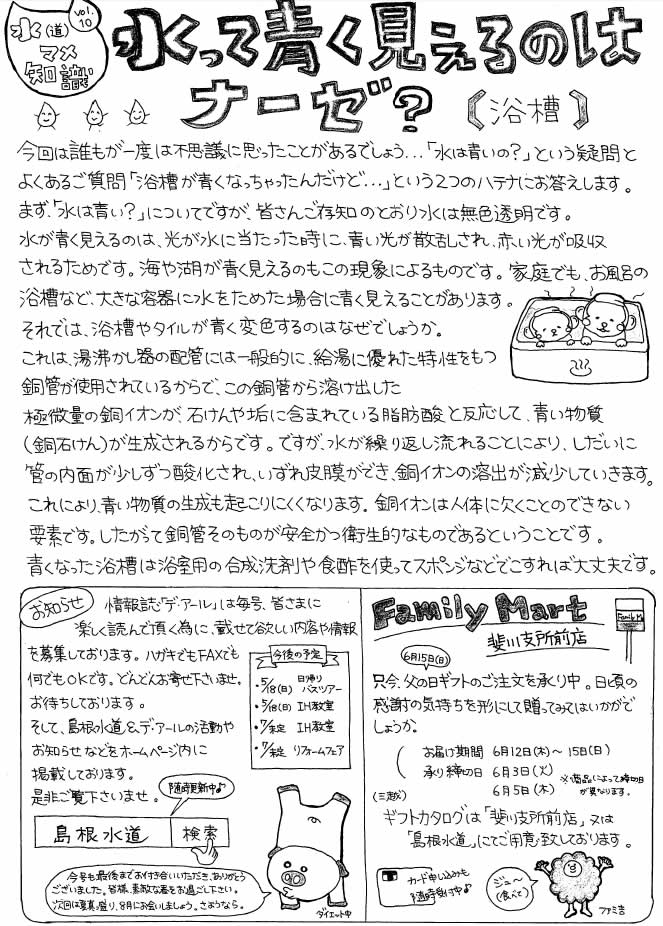 水(道)
マメ
知識
vol.10
水って青く見えるのは
ナーゼ?
【浴槽】
今回は誰もが一度は不思議に思ったことがあるでしょう…「水は青いの?」という疑問と
よくあるご質問「浴槽が青くなっちゃったんだけど…」という2つのハテナにお答えします。
まず、「水は青い?」についてですが、皆さんご存知のとおり水は無色透明です。
水が青く見えるのは、光が水に当たった時に、青い光が散乱され、赤い光が吸収
されるためです。海や湖が青く見えるのもこの現象によるものです。家庭でも、お風呂の
浴槽など、大きな容器に水をためた場合に青く見えることがあります。
それでは、浴槽やタイルが青く変色するのはなぜでしょうか。
これは、湯沸かし器の配管には一般的に、給湯に優れた特性をもつ
銅管が使用されているからで、この銅管から溶け出した
極微量の銅イオンが、石けんや垢に含まれている脂肪酸と反応して、青い物質
(銅石けん)が生成されるからです。ですが、水が繰り返し流れることにより、しだいに
管の内面が少しずつ酸化され、いずれ皮膜ができ、銅イオンの溶出が減少していきます。
これにより、青い物質の生成も起こりにくくなります。銅イオンは人体に欠くことのできない
要素です。したがって銅管そのものが安全かつ衛生的なものであるということです。
青くなった浴槽は浴室用の合成洗剤や食酢を使ってスポンジなどでこすれば大丈夫です。
お知らせ
情報誌「デ・アール」は毎号、皆さまに
楽しく読んで頂く為に、載せて欲しい内容や情報
を募集しております。ハガキでもFAXでも
何でもOKです。どんどんお寄せ下さいませ。
お待ちしております。
そして、島根水道&デ・アールの活動や
お知らせなどをホームページ内に
掲載しております。
是非ご覧下さいませ。
随時更新中♪
島根水道 検索
今後の予定
・5/18(日) 日帰りバスツアー
・5/18(日) IH教室
・7/未定 IH教室
・7/未定 リフォームフェア
今号も最後までお付き合いいただき、ありがとう
ございました。皆様、素敵な春をお過ごし下さい。
次回は夏真っ盛り、8月にお会いしましょう。さようなら。
ダイエット中
Family Mart
斐川支所前店
Family M
6月15日(日)
只今、父の日ギフトのご注文を承り中。日頃の
感謝の気持ちを形にして贈ってみてはいかがで
しょうか。
お届け期間 6月12日(木)~15日(日)
承り締切日 6月3日(火)
(三越) 6月5日(木)
※商品によって締切日
が異なります。
ギフトカタログは「斐川支所前店」又は
「島根水道」にてご用意致しております。
カード申し込みも
随時受付中♪
ジュ~
(食べて)
ファミ吉